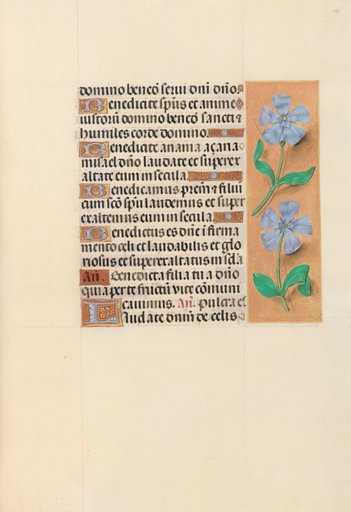 domino benedicite servi dñi dño
Benedicite spũs et anime
iustorum domino benedicite sancti
humiles corde domino.
Benedicite anania açaria
misael dño laudate et superex
altate eum in secula.
Benedicamus prem et filiu
cum sco spũ laudemus et super
exaltemus eum in secula.
Benedictus es dñe i firma
mento celi et laudabilis et glo
riosus et superexaltatus in scla
Añ. Benedicta filia tu a dño
quia per te fructũ vite cõmuni
cavimus. Añ. pulcra es
Laudate dnm de celis